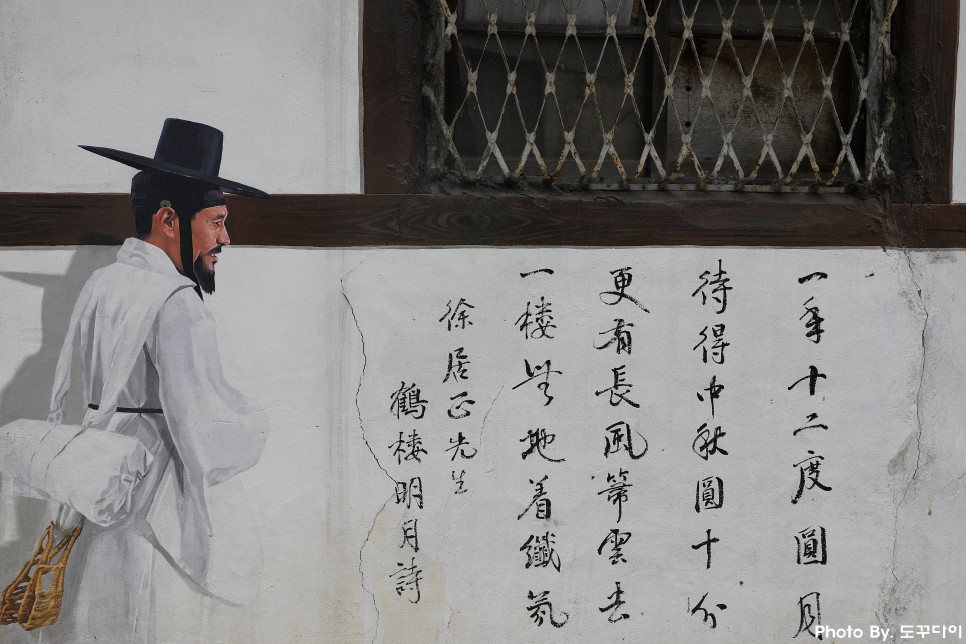 一年十二度圓月
待得中秋圓十分
更有長風箒雲去
一楼無地着纖氛
徐居正先生
鶴楼明月詩
Photo By. 도꾸다이